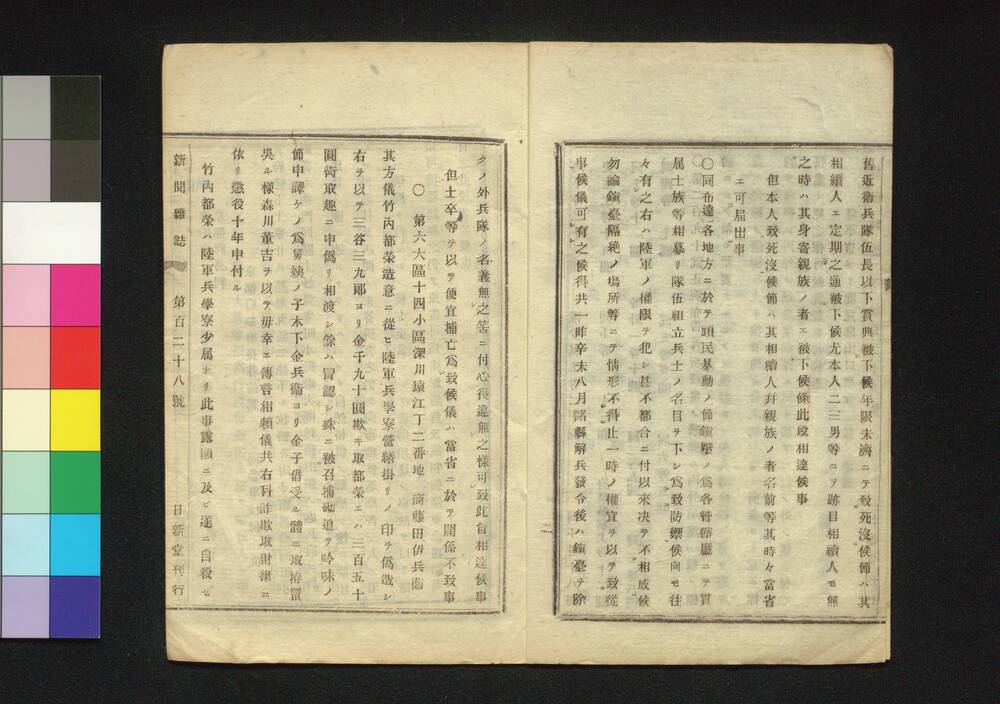 舊近衞兵隊伍長以下賞典被下候年限未濟ニテ致死沒候節ハ其
相續人エ定期之通被下候尤本人二三男等ニテ跡目相續人モ無
之時ハ其身寄親族ノ者エ被下候條此段相達候事
但本人致死沒候節ハ其相續人幷親族ノ者名前等其時々當省
エ可屆出事
〇同布達各地方ニ於テ頑民暴動ノ節鎭壓ノ爲各管轄廳ニテ貫
属士族等相募リ隊伍組立兵士ノ名目ヲ下シ爲致防禦候向モ往
々有之右ハ陸軍ノ權限ヲ犯シ甚不都合ニ付以來决テ不相成候
勿論鎭臺隔絶ノ塲所等ニテ情形不得止一時ノ權宜ヲ以テ致從
事候儀可有之候得共一昨辛未八月諸縣解兵發令後ハ鎭臺ヲ除
クノ外兵隊ノ名義無之筈ニ付心得違無之樣可致此旨相達候事
但士卒等ヲ以テ便宜捕亡爲致候儀ハ當省ニ於テ關係不致事
〇 第六大區十四小區深川猿江丁二番地 商藤田伊兵衞
其方儀竹内都榮造意ニ從ヒ陸軍兵學寮營繕掛リノ印ヲ僞造シ
右ヲ以テ三谷三九郎ヨリ金千九十圓欺キ取都榮エハ三百五十
圓術取趣ニ申僞リ相渡シ餘ハ冒認シ殊ニ被召捕
節申譯ケノ爲舅
ノ子木下金兵衞ヨリ金子借受ル體ニ取拵置
呉ル樣森川董吉ヲ以テ毋幸エ傳言相賴儀共右科詐欺取財律ニ
依リ懲役十年申付ル
竹内都榮ハ陸軍兵學寮少属ナリ此事露顯ニ及ビ遂ニ自殺セ
新聞雜誌 第百二十八號 日新堂刊行